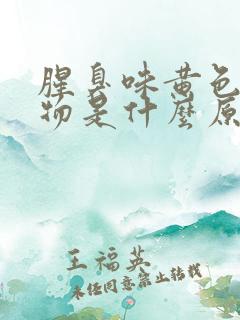 腥臭味黄色
物是什麼原
王福英
未经同意禁止转载